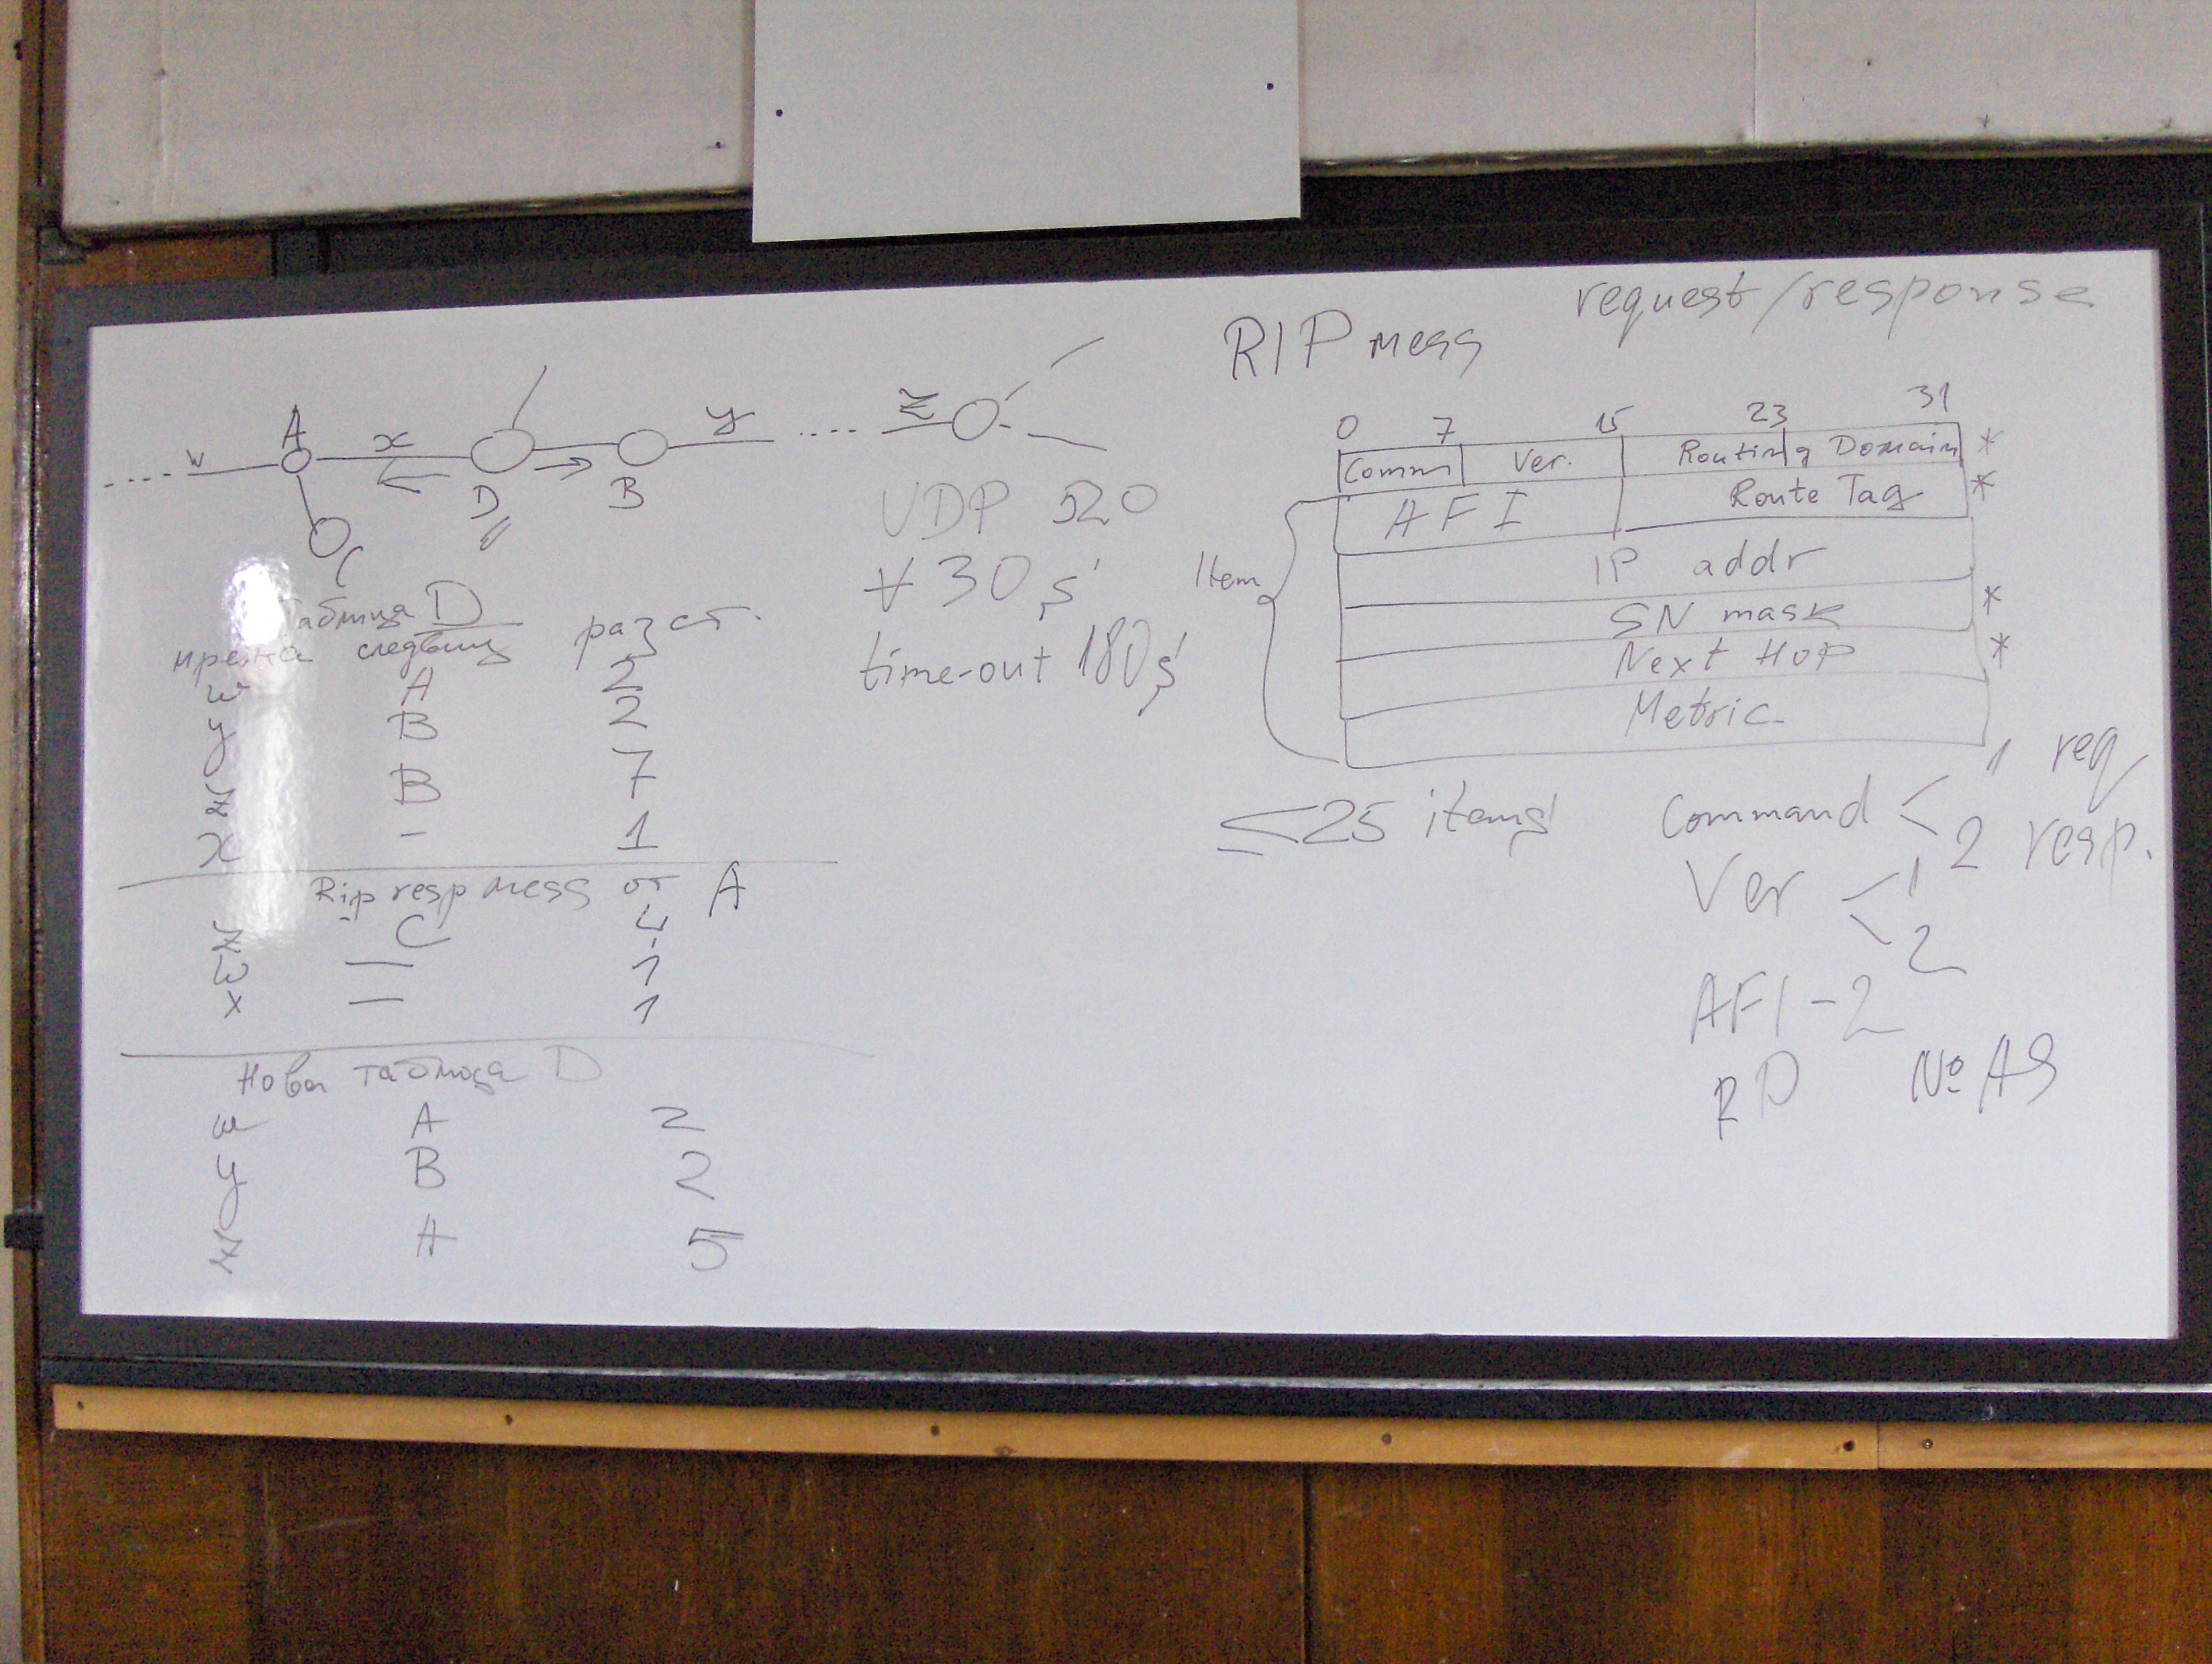 w A x D B y z
C
UDP 520
∀ 30 s
time-out 180 s
Таблица D
мрежа следващ разст.
w A 2
y B 2
z B 7
x - 1
Rip resp mess от A
z C 4
w — 1
x — 1
Нова таблица D
w A 2
y B 2
z A 5
request/response
RIP mess
0 7 15 23 31
Comm Ver. Routing Domain *
AFI Route Tag *
Item
IP addr
SN mask *
Next Hop *
Metric
≤25 items
Command < 1 req
2 resp.
Ver < 1
2
AFI-2
RD № AS